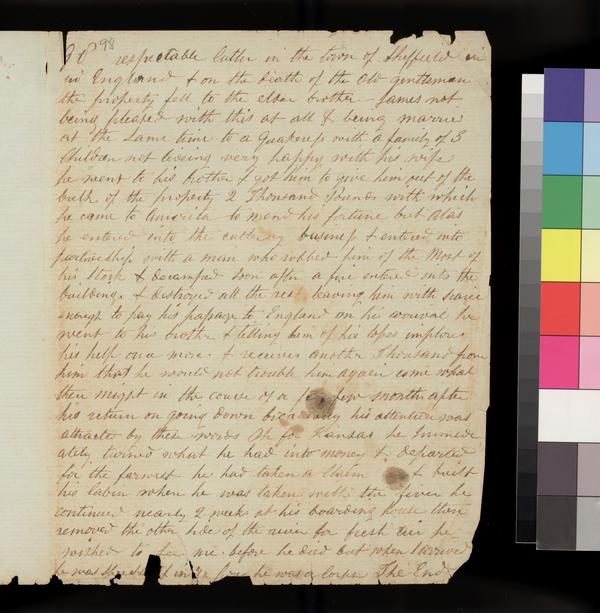 98
respectable Cutler in the town of Sheffield in
in England & on the Death of the Old gentleman
the property fell to the elder brother - James not
being pleased with this at all & being married
at the Same time to a Quakeress with a family of 3
Children not being very happy with his wife
he went to his brother & got him to give him out of the
bulk of the property 2 Thousand Pounds with which
he came to America to mend his fortune but Alas
he entered into the cutlery business & entered into
partnership with a man who robbed him of the Most of
his Stock & decamped Soon after a fire entered into the
building & destroyed all the rest leaving him with scarce
enough to pay his passage to England on his arrival he
went to his brother & telling him of his loses implores
his help once more & receives another Thousand from
him that he would not trouble him again come what
then might in the course of a few few month after
his return on going down his attention was
attracted by these words Oh for Kansas he Immedi
ately turned what he had into money & departed
for the farwest he had taken a Claim & built
his Cabin when he was taken with the fever he
continued nearly 2 weeks at his boarding house then
removed the other side of the river for fresh air he
wished to see me before he died but when I arrived
he was he was a Corpse The End